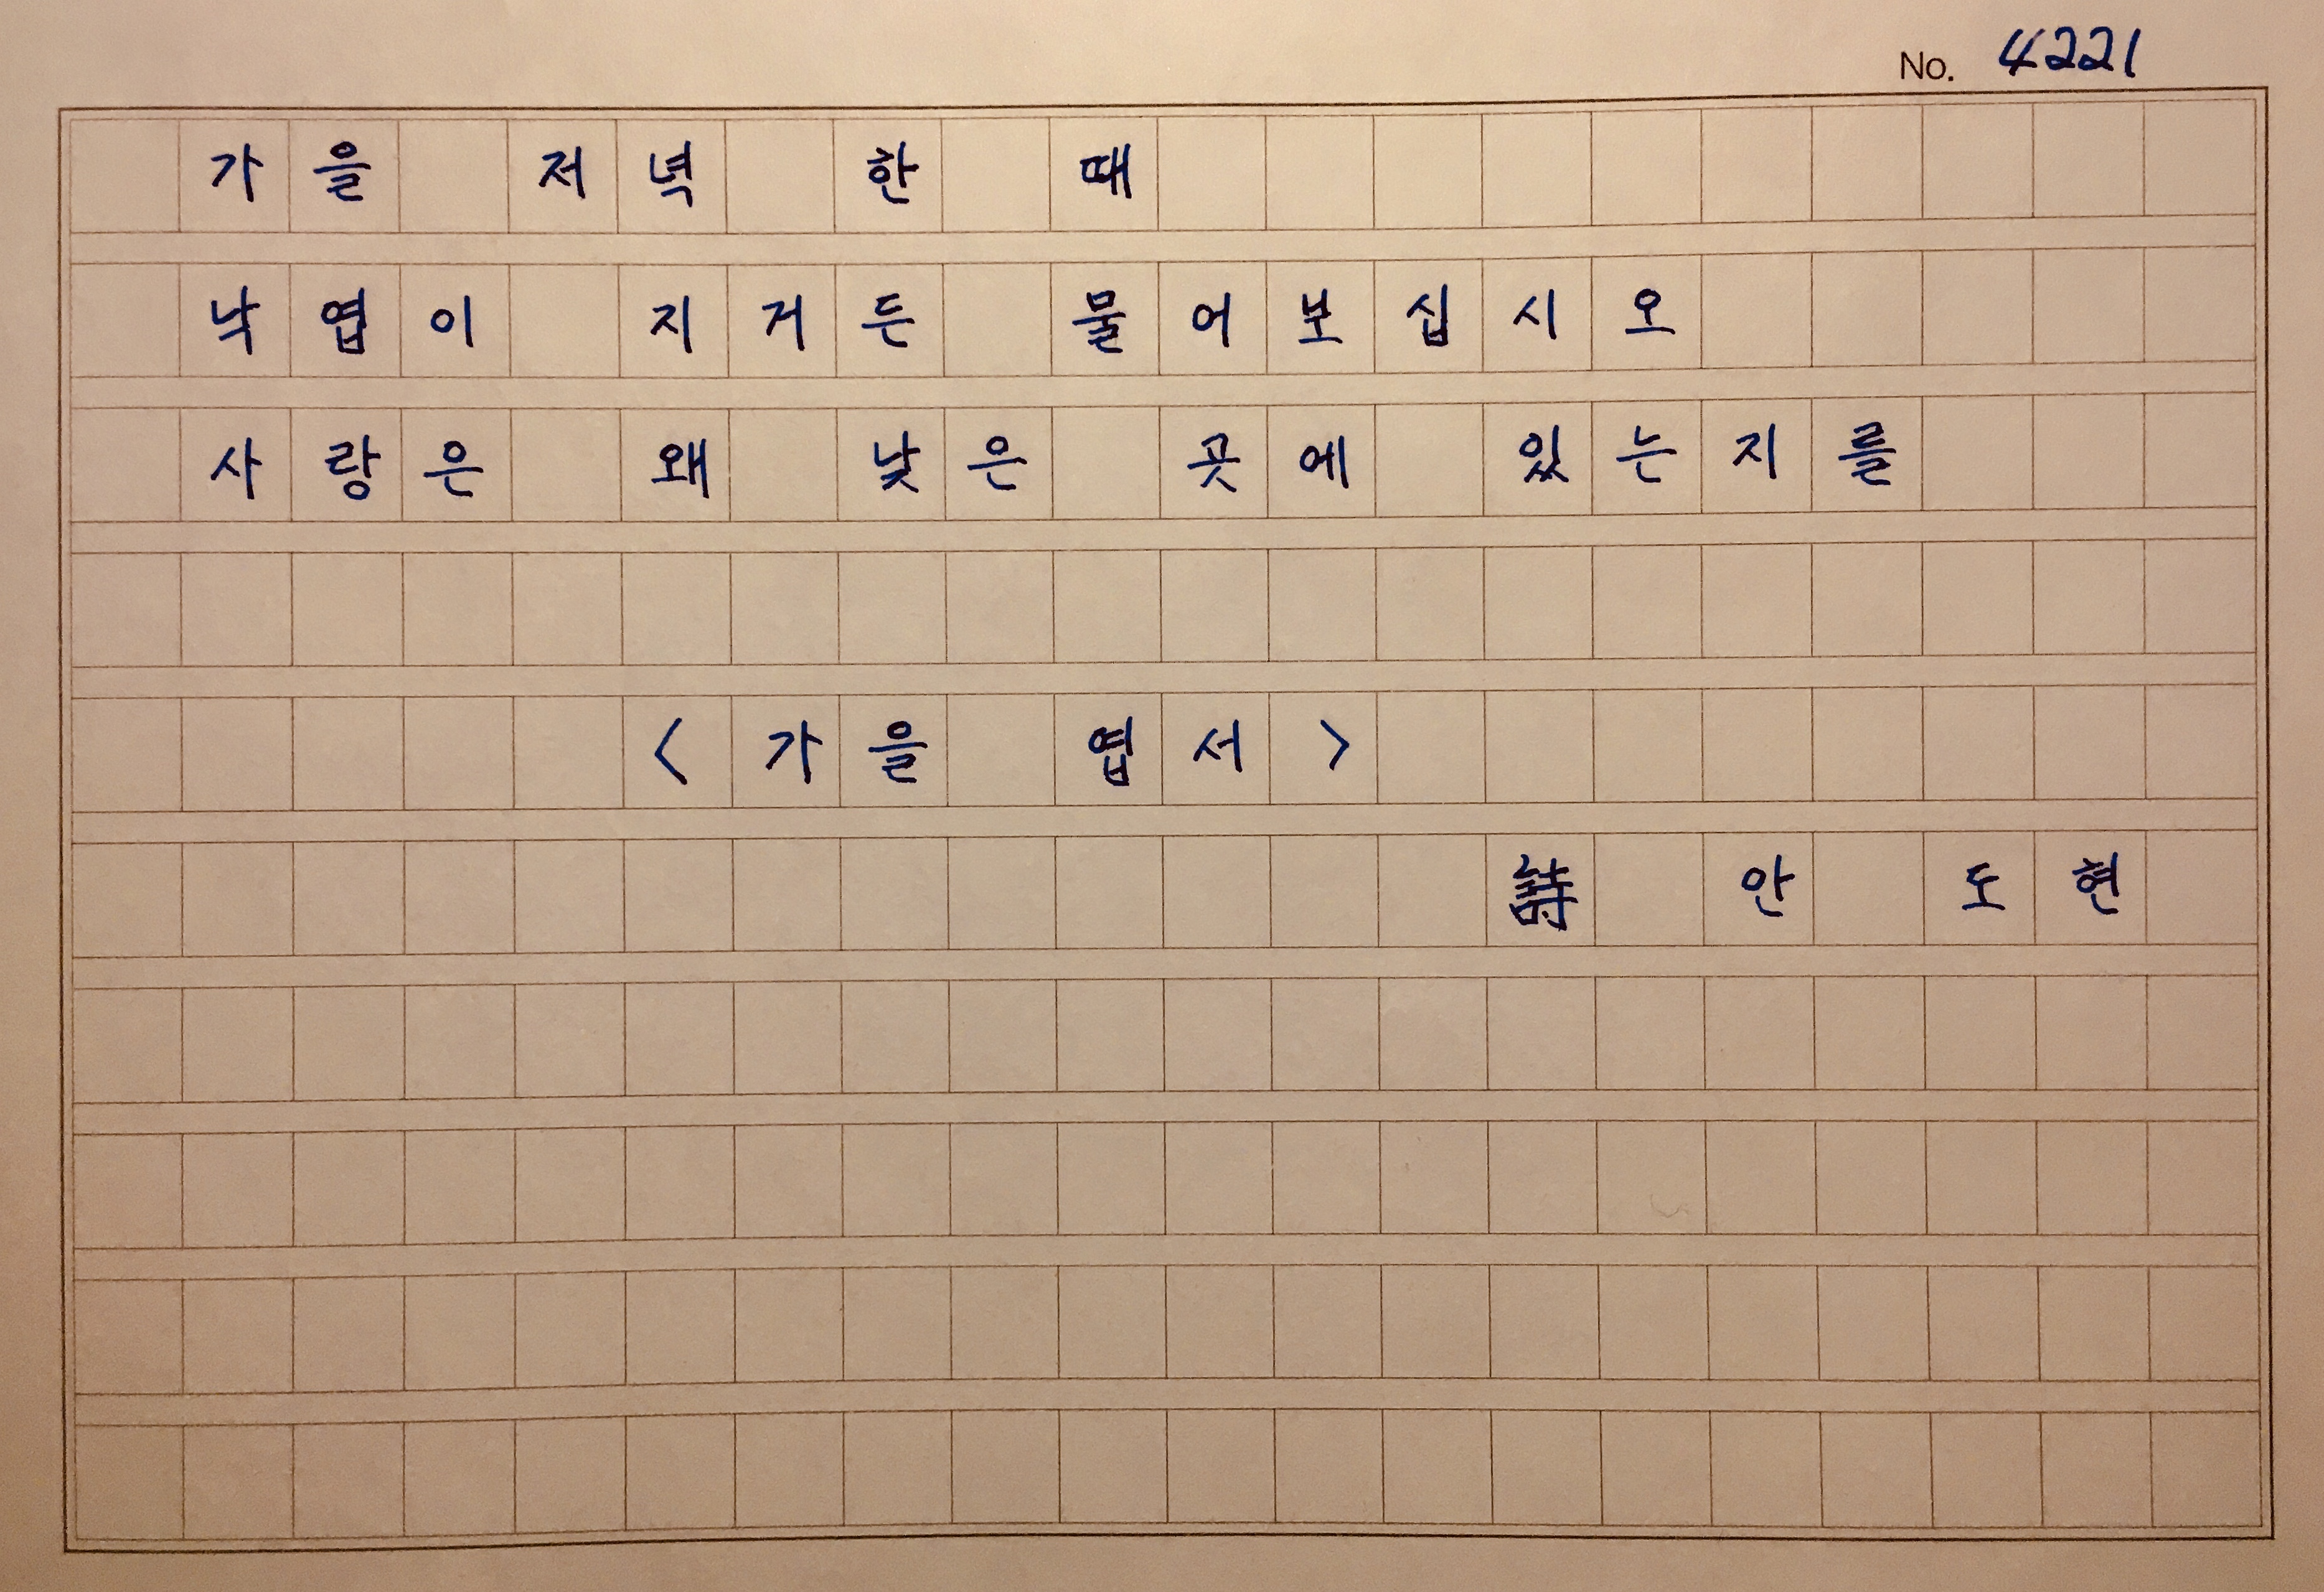 No. 4221
가을 저녁 한 때
낙엽이 지거든 물어보십시오
사랑은 왜 낮은 곳에 있는지를
<가을 엽서>
詩 안 도현